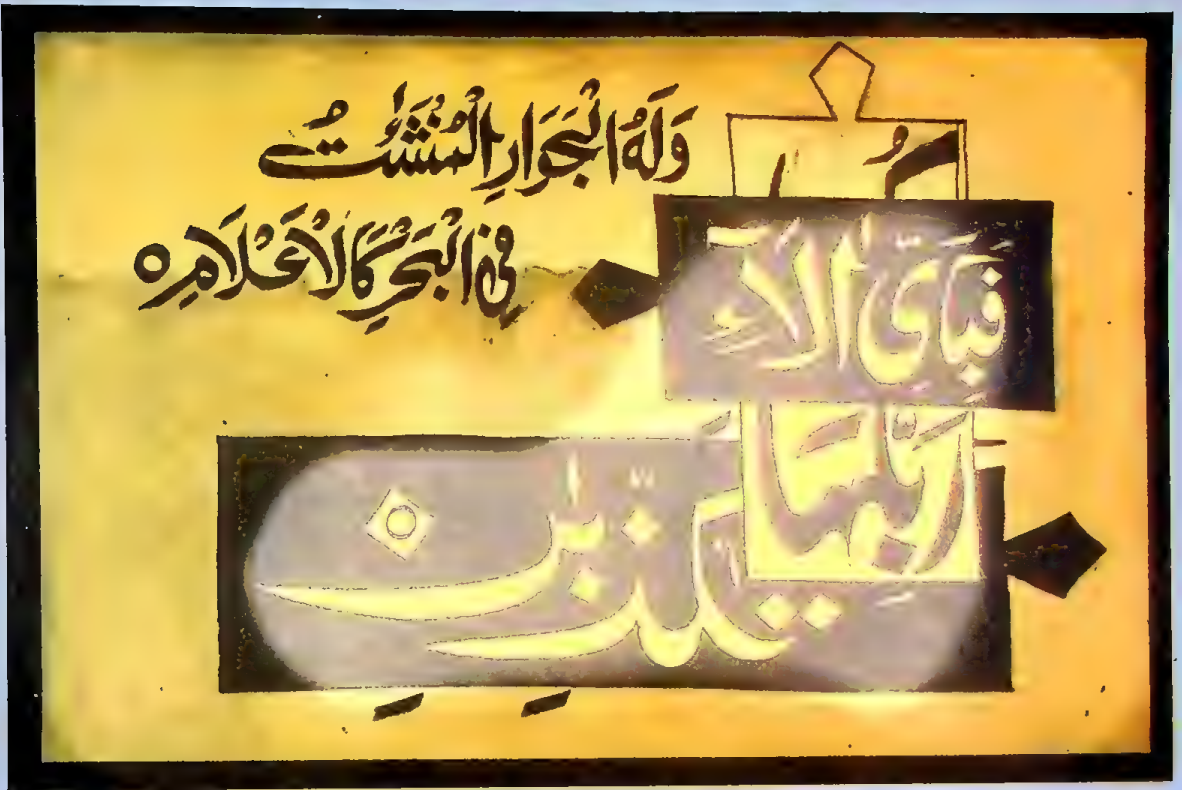 وَلَهُ الْجَوَارِ الْمُنْشَئٰتُ
فِي الْبَحْرِ كَالْاَعْلَامِ ○
فَبِاَيِّ اٰلَآءِ
رَبِّكُمَا
تُكَذِّبٰنِ ○